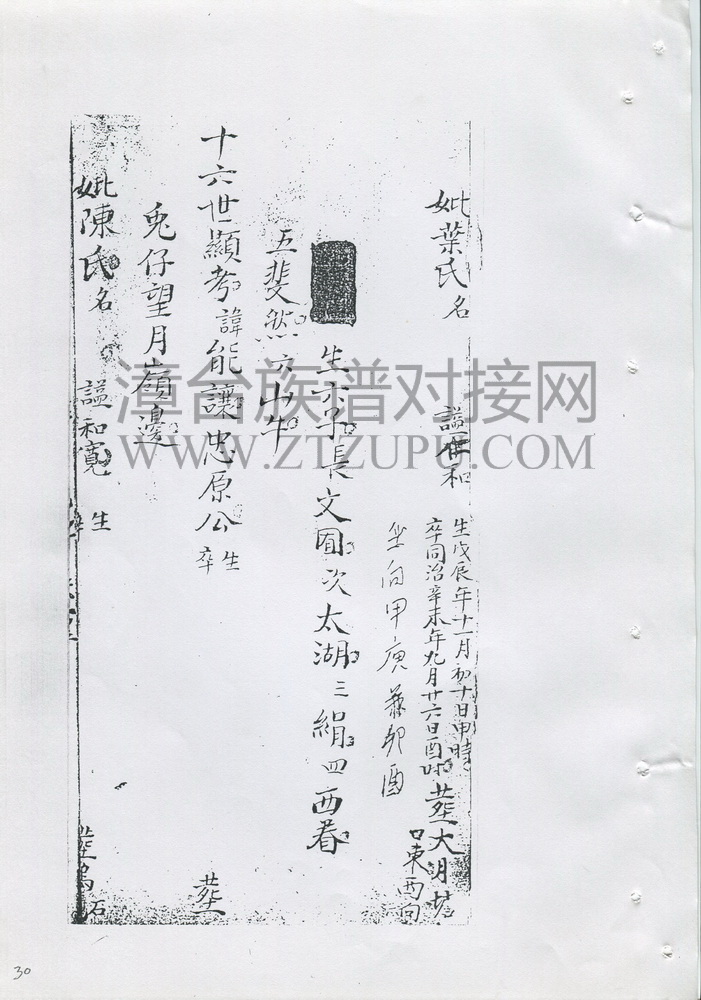 妣葉氏名 謚 和 生戊辰年十一月初十日申時 葬大月
卒同治辛未年九月廿六日酉时 口東西向
坐向甲庚兼卯酉
生六子長文囿次太湖三絹四西春
五斐然六山牛
十六世顯考諱能讓忠原公 生卒 葬
兎仔望月嶺邊
妣陳氏名 謚和寬 生 葬烏石
漳台族谱对接网
WWW.ZTZUPU.COM
30